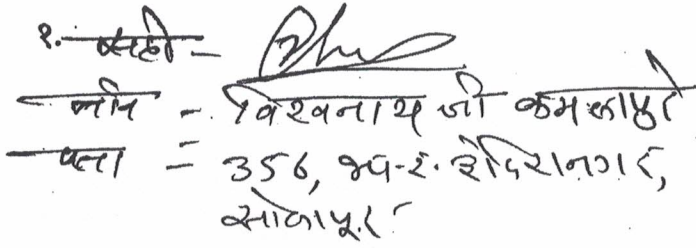 १. सही -
नांव - विश्वनाथ जी कमलापुरे
पत्ता = ३५६, भ.नं. इंदिरानगर,
सोलापूर.